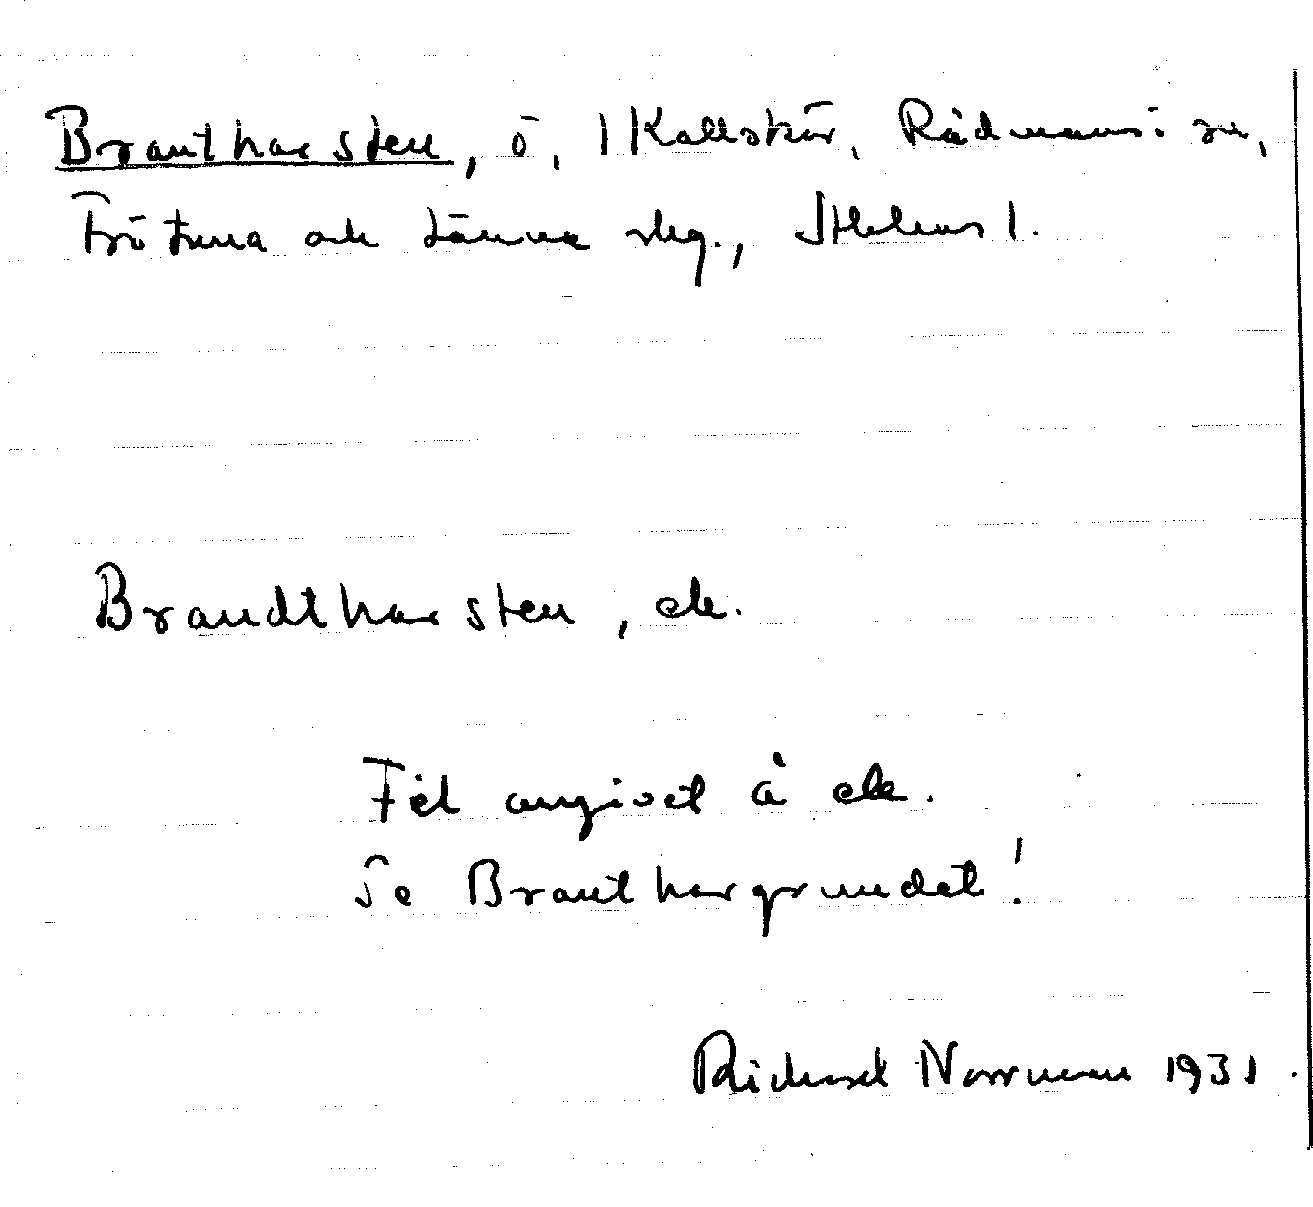 Brantharsten, ö, 1 Kallskär, Rådmansö sn,
Frötuna och Länna skg., Sthlms l.
Brandtharsten, ek.
Fel angivet å ek.
Se Branthargrundet!
Richard Norrman 1931.